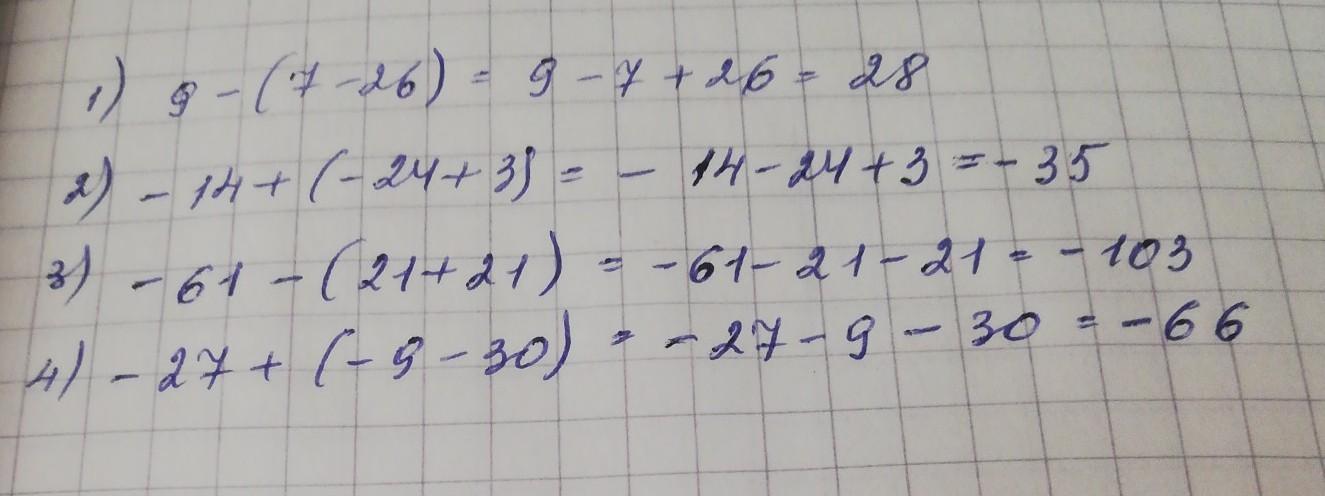 1) 9 - (7 - 26) = 9 - 7 + 26 = 28
2) - 14 + (- 24 + 3) = - 14 - 24 + 3 = - 35
3) - 61 - (21 + 21) = - 61 - 21 - 21 = - 103
4) - 27 + (- 9 - 30) = - 27 - 9 - 30 = - 66